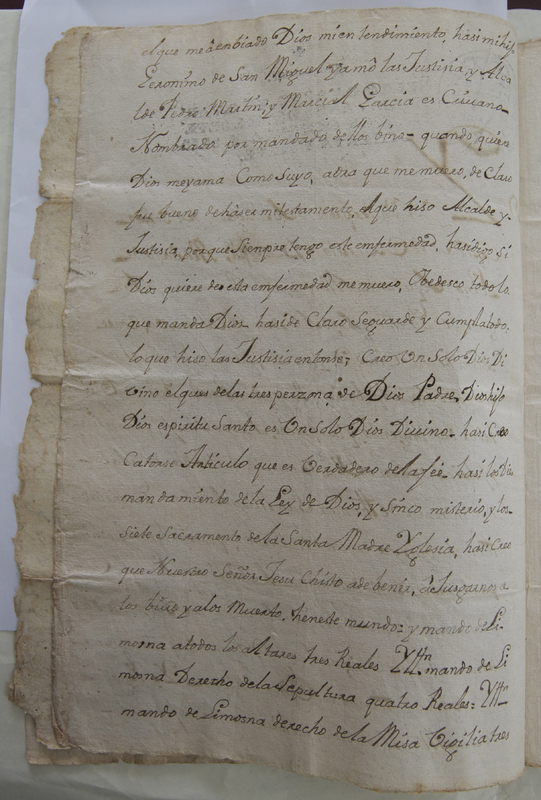 el que me á enbiado Dios mi entendimiento, hasi mi hijo
Geronimo de San Miguel yamó las Justisia y Alca
lde Pedro Martin; y Marcial Garcia es Criuano
Nombrado por mandado dellos bino quando quiera
Dios me yama Como Suyo, abra que me muero, de Claro
fui bueno de háser mi testamento, Aqui hiso Alcalde y
Justisia, porque Siempre tengo este enfermedad, hasi digo Si
Dios quiere de esta enfermedad me muero, Obedesco todo lo
que manda Dios hasi de Claro Se guarde y Cumpla todo
lo que hiso las Justisia entonse; Creo Un Solo Dios Di
vino el ques de las tres perzona, de Dios Padre, Dios hijo
Dios espiritu Santo es Un Solo Dios Divino hasi Creo
Catorse Articulo que es Verdadero de la feé hasi los Dies
mandamiento de la Ley de Dios, y Sinco misterio, y los
Siete Sacramento de la Santa Madre Yglesia, hasi Creo
que Nuestro Señor Jesu Christo a de benir, á Jusgarnos a
los biuo y a los Muerto, heneste mundo: y mando de Li-
mosna a todos los altares tres Reales Yttn mando de Li
mosna Derecho de la Sepultura quatro Reales: Yttn
mando de Limosna derecho de la Misa Vigilia tres